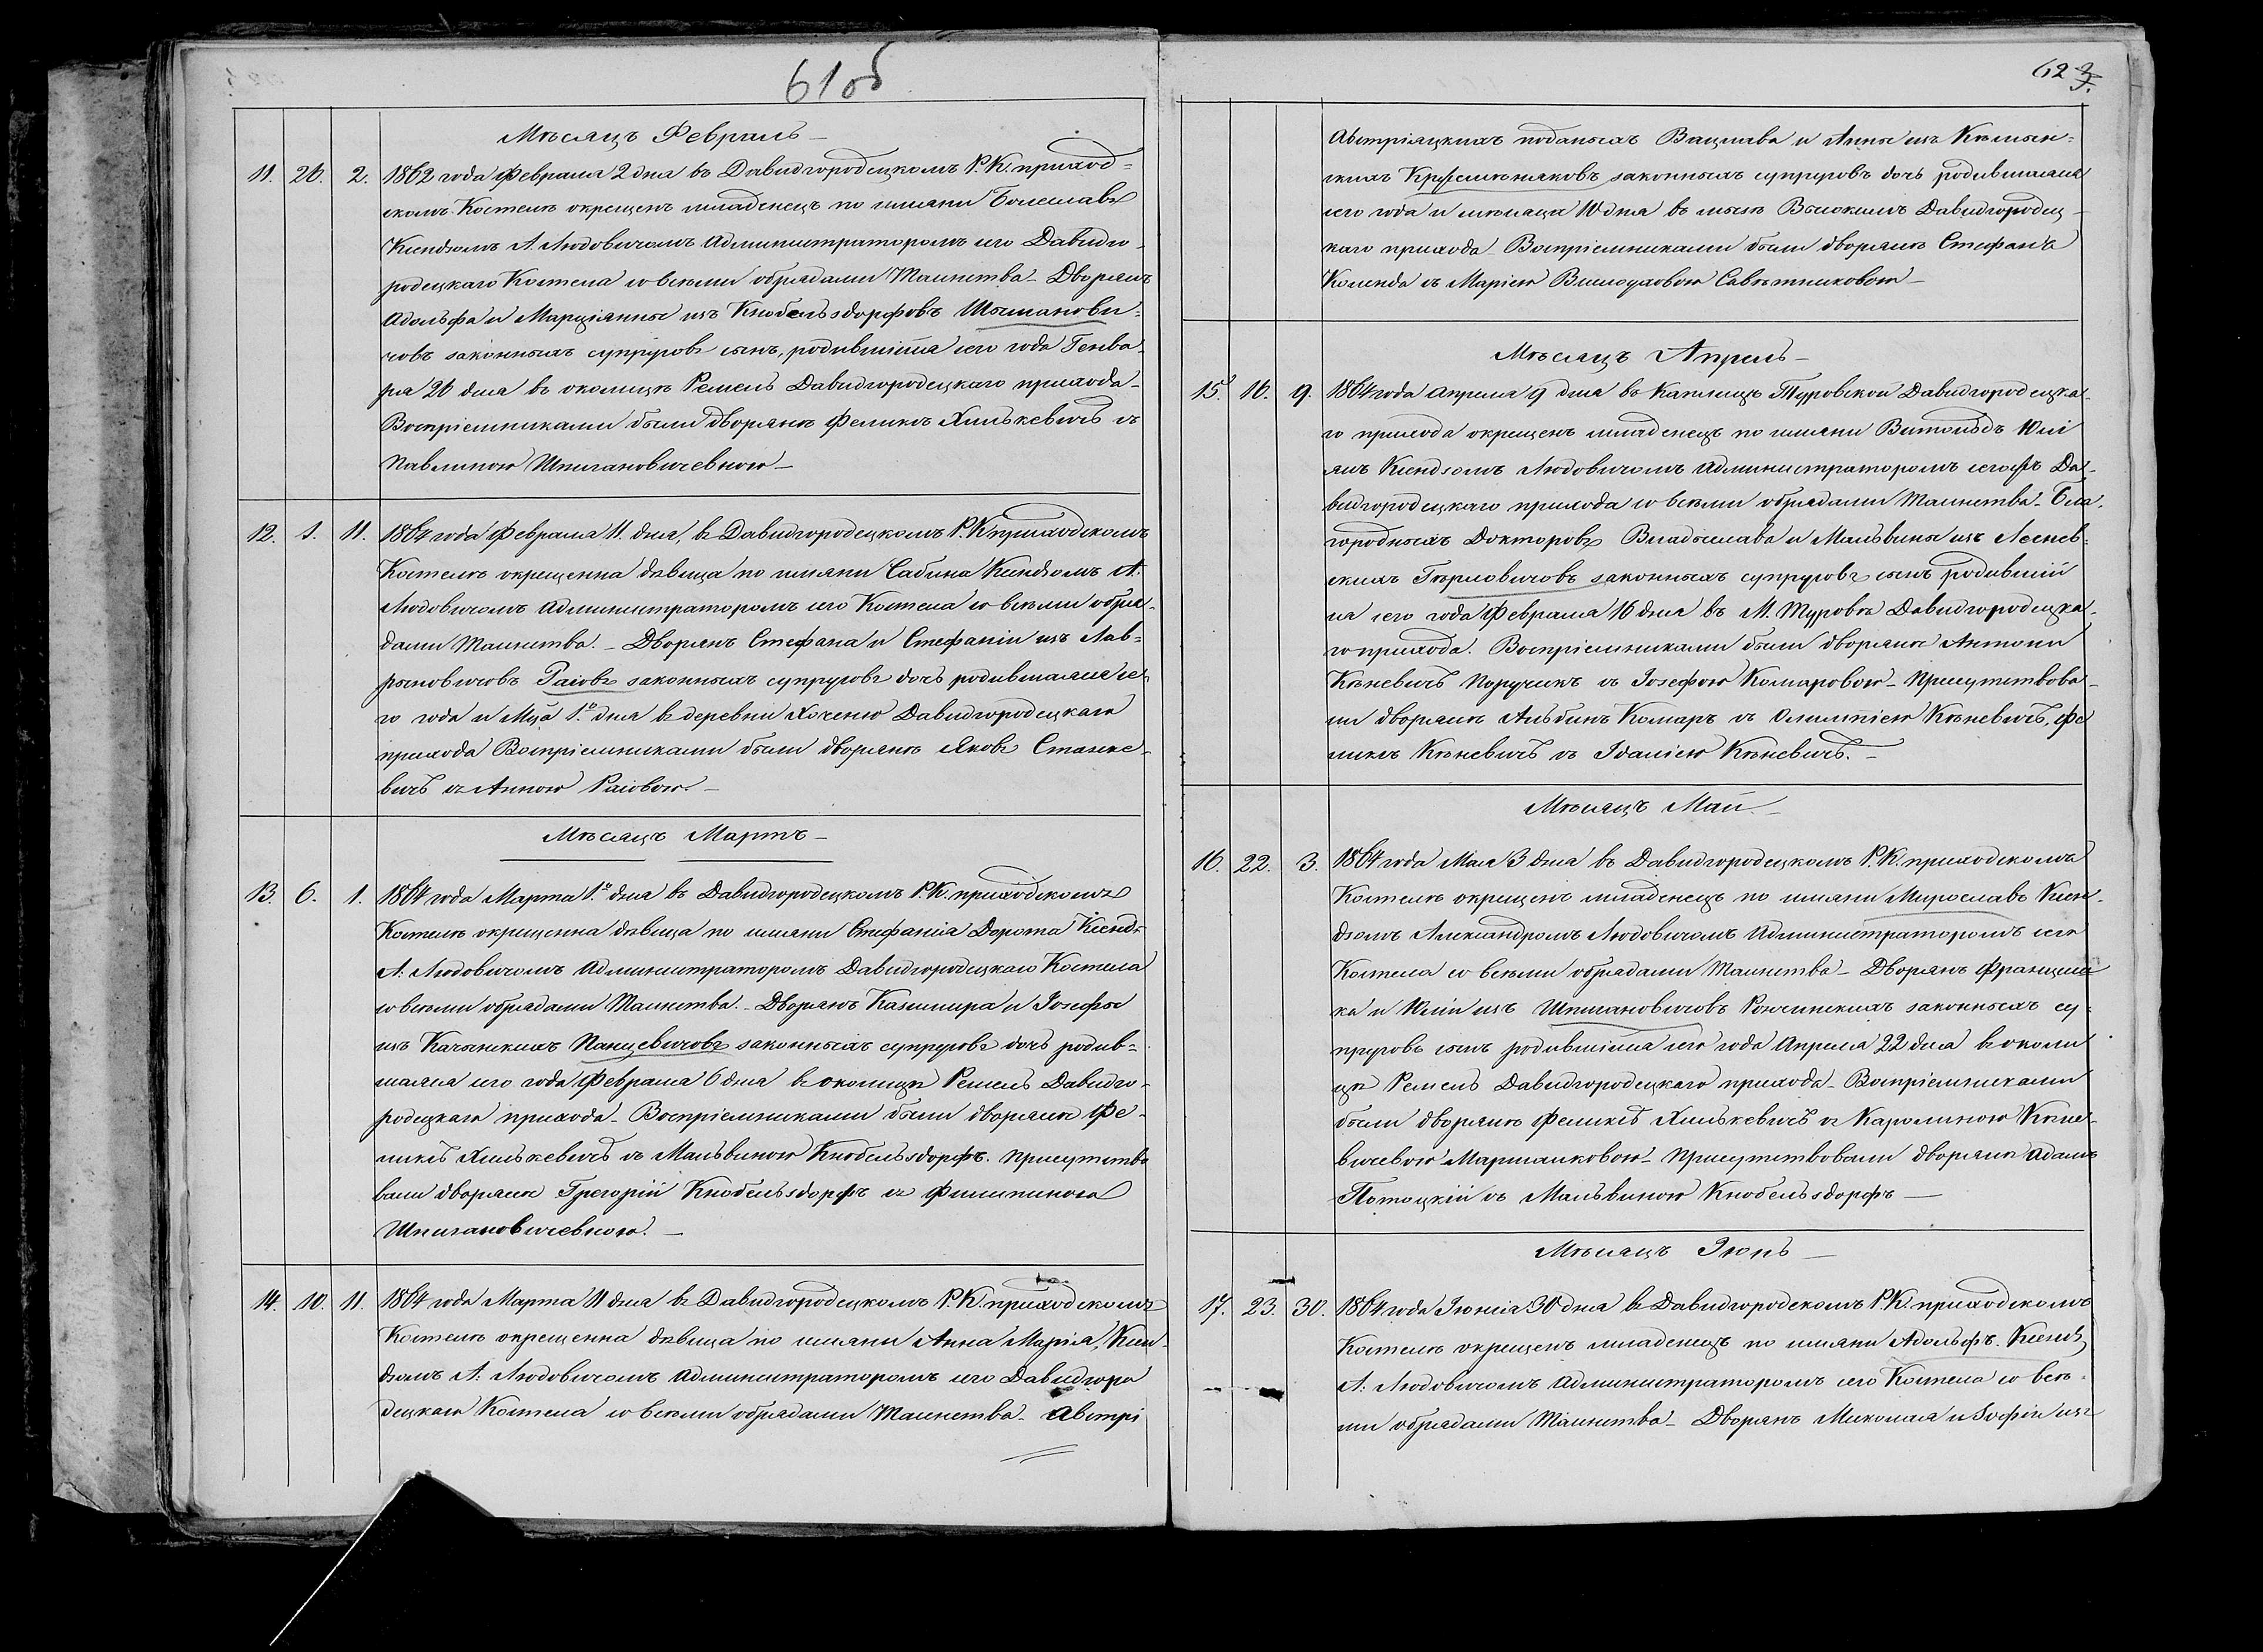 61об
Мѣсяцъ Февраль –
11. 26. 2. 1862 года Февраля 2 дня въ Давидгородецкомъ Р. К. приход=
скомъ Костелѣ окрещенъ младенецъ по имяни Болеславъ
Ксендзомъ А. Людовичомъ Администраторомъ сего Давидго-
родецкаго Костела со всѣми обрядами Таинства – Дворянъ
Адольфа и Марціянны изъ Кнобельздорфовъ Шпилянови=
човъ законныхъ супруговъ сынъ, родившійся сего года Генва-
ря 26 дня въ околицѣ Ремель Давидгородецкаго прихода –
Воспріемниками были дворянѣ Феликсъ Хилькевичъ съ
Павлиною Шпилановичевною –
12. 1. 11. 1864 года Февраля 11. дня, въ Давидгородецкомъ Р. К. приходскомъ
Костелѣ окрещенна дѣвица по имяни Сабина Ксендзомъ А.
Людовичомъ Администраторомъ сего Костела со всѣми обря-
дами Таинства. – Дворянъ Стефана и Стефаніи изъ Лав=
рыновичовъ Раіовъ законныхъ супруговъ дочь родившаяся се-
го года и Мца 1.го дня въ деревни Хоченю Давидгородецкаго
прихода Воспріемниками были дворянѣ Яковъ Станке-
вичъ съ Анною Раіовою. –
Мѣсяцъ Мартъ –
13. 6. 1. 1864 года Марта 1.го дня въ Давидгородецкомъ Р. К. приходскомъ
Костелѣ окрещенна дѣвица по имяни Стефанія Дорота Ксендз.
А. Людовичомъ Администраторомъ Давидгородецкаго Костела
со всѣми обрядами Таинства. – Дворянъ Казимира и Іозефы
изъ Качинскихъ Панцевичовъ законныхъ супруговъ дочь родив=
шаяся сего года Февраля 6 дня въ околицѣ Ремель Давидго-
родецкаго прихода – Воспріемниками были дворяне Фе-
ликсъ Хилькевичъ съ Мальвиною Кнобельздорфъ. Присутство
вали дворяне Грегорій Кнобельздорфъ съ Филипиною
Шпилановичевною. –
14. 10. 11. 1864 года Марта 11 дня въ Давидгородецкомъ Р. К. приходскомъ
Костелѣ окрещенна дѣвица по имяни Анна Марія, Ксен-
дзомъ А. Людовичомъ Администраторомъ сего Давидгоро
децкаго Костела со всѣми обрядами Таинства – Австрі
62
Австріяцкихъ поданыхъ Вацлава и Анны изъ
скихъ законныхъ супруговъ дочь родившаяся
сего года и мѣсяца 10 дня въ мѣстѣ Высокимъ Давидгородец-
каго прихода – Воспріемниками были дворянѣ Стефанъ
Коленда съ Маріею Савѣтниковою –
Мѣсяцъ Апрель –
15. 16. 9. 1864 года Апреля 9 дня въ Каплицѣ Туровской Давидгородецка-
го прихода окрещенъ младенецъ по имяни Витольдъ Юлі
янъ Ксендзомъ Людовичомъ Администраторомъ Да-
видгородецкаго прихода со всѣми обрядами Таинства – Бла-
городныхъ Докторовъ Владыслава и Мальвины изъ Лесnев=
скихъ законныхъ супруговъ сынъ родившій
ся сего года Февраля 16 дня въ М. Туровѣ Давидгородецка-
го прихода. Воспріемниками были дворяне Антони
Кѣневичъ Поручикъ съ Іозефою Комаровою – Присутствова-
ли дворянѣ Альбинъ Комаръ съ Олимпіею Кѣневичъ, Фе
ликсъ Кѣневичъ съ Іданіею Кѣневичъ. –
Мѣсяцъ Май. –
16. 22. 3. 1864 года Мая 3 дня въ Давидгородецкомъ Р. К. приходскомъ
Костелѣ окрещенъ младенецъ по имяни Мирославъ Ксен-
дзомъ Александромъ Людовичомъ Администраторомъ сего
Костела со всѣми обрядами Таинства – Дворянъ Францишка
ка и Юліи изъ Шпилановичовъ законныхъ су-
пруговъ сынъ родившійся сего года Апреля 22 дня въ околи
цѣ Ремель Давидгородецкаго прихода – Воспріемниками
были дворянѣ Феликсъ Хилькевичъ съ Каролиною Кѣне-
вичевою Маршалковою – Присутствовали дворяне Адамъ
Потоцкій съ Мальвиною Кнобельздорфъ –
Мѣсяцъ Іюнь –
17. 23. 30. 1864 года Іюнія 30 дня въ Давидгородскомъ Р. К. приходскомъ
Костелѣ окрещенъ младенецъ по имяни Адольфъ. Ксендз.
А. Людовичомъ Администраторомъ сего Костела со всѣ-
ми обрядами Таинства – Дворянъ Миколая и Зофіи изъ